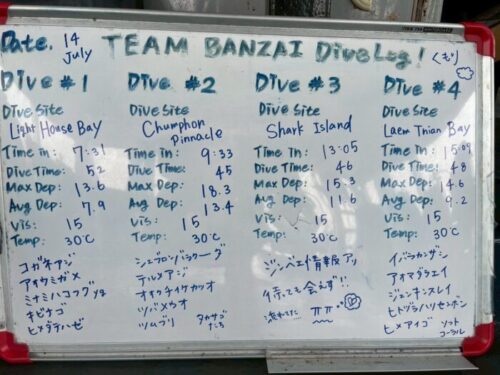 Date. 14 July TEAM BANZAI Dive Log! くもり
Dive #1
Dive Site
Light House Bay
Time in: 7:31
Dive Time: 52
Max Dep: 13.6
Avg Dep: 7.9
Vis: 15
Temp: 30℃
コガネアジ
アオウミガメ
ミナミハコフグyg
キビナゴ
ヒメダテハゼ
Dive #2
Dive Site
Chumphon Pinnacle
Time in: 9:33
Dive Time: 45
Max Dep: 18.3
Avg Dep: 13.4
Vis: 15
Temp: 30℃
シェブロンバラクーダ
テルメアジ
オオクチイケカツオ
ツバメウオ
ツムブリ
Dive #3
Dive Site
Shark Island
Time in: 13:05
Dive Time: 46
Max Dep: 15.3
Avg Dep: 11.6
Vis: 15
Temp: 30℃
ジンベエ情報アリ
待っても会えず!!
流れてた
Dive #4
Dive Site
Laem Thian Bay
Time in: 15:09
Dive Time: 48
Max Dep: 14.6
Avg Dep: 9.2
Vis: 15
Temp: 30℃
イバラカンザシ
アオマダラエイ
ジェンキンスレイ
ヒトヅラハリセンボン
ヒメアイゴ ソフトコーラル